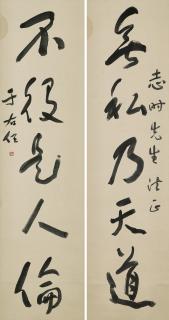 無私乃天道
志時先生法正
不役是人倫
于右任